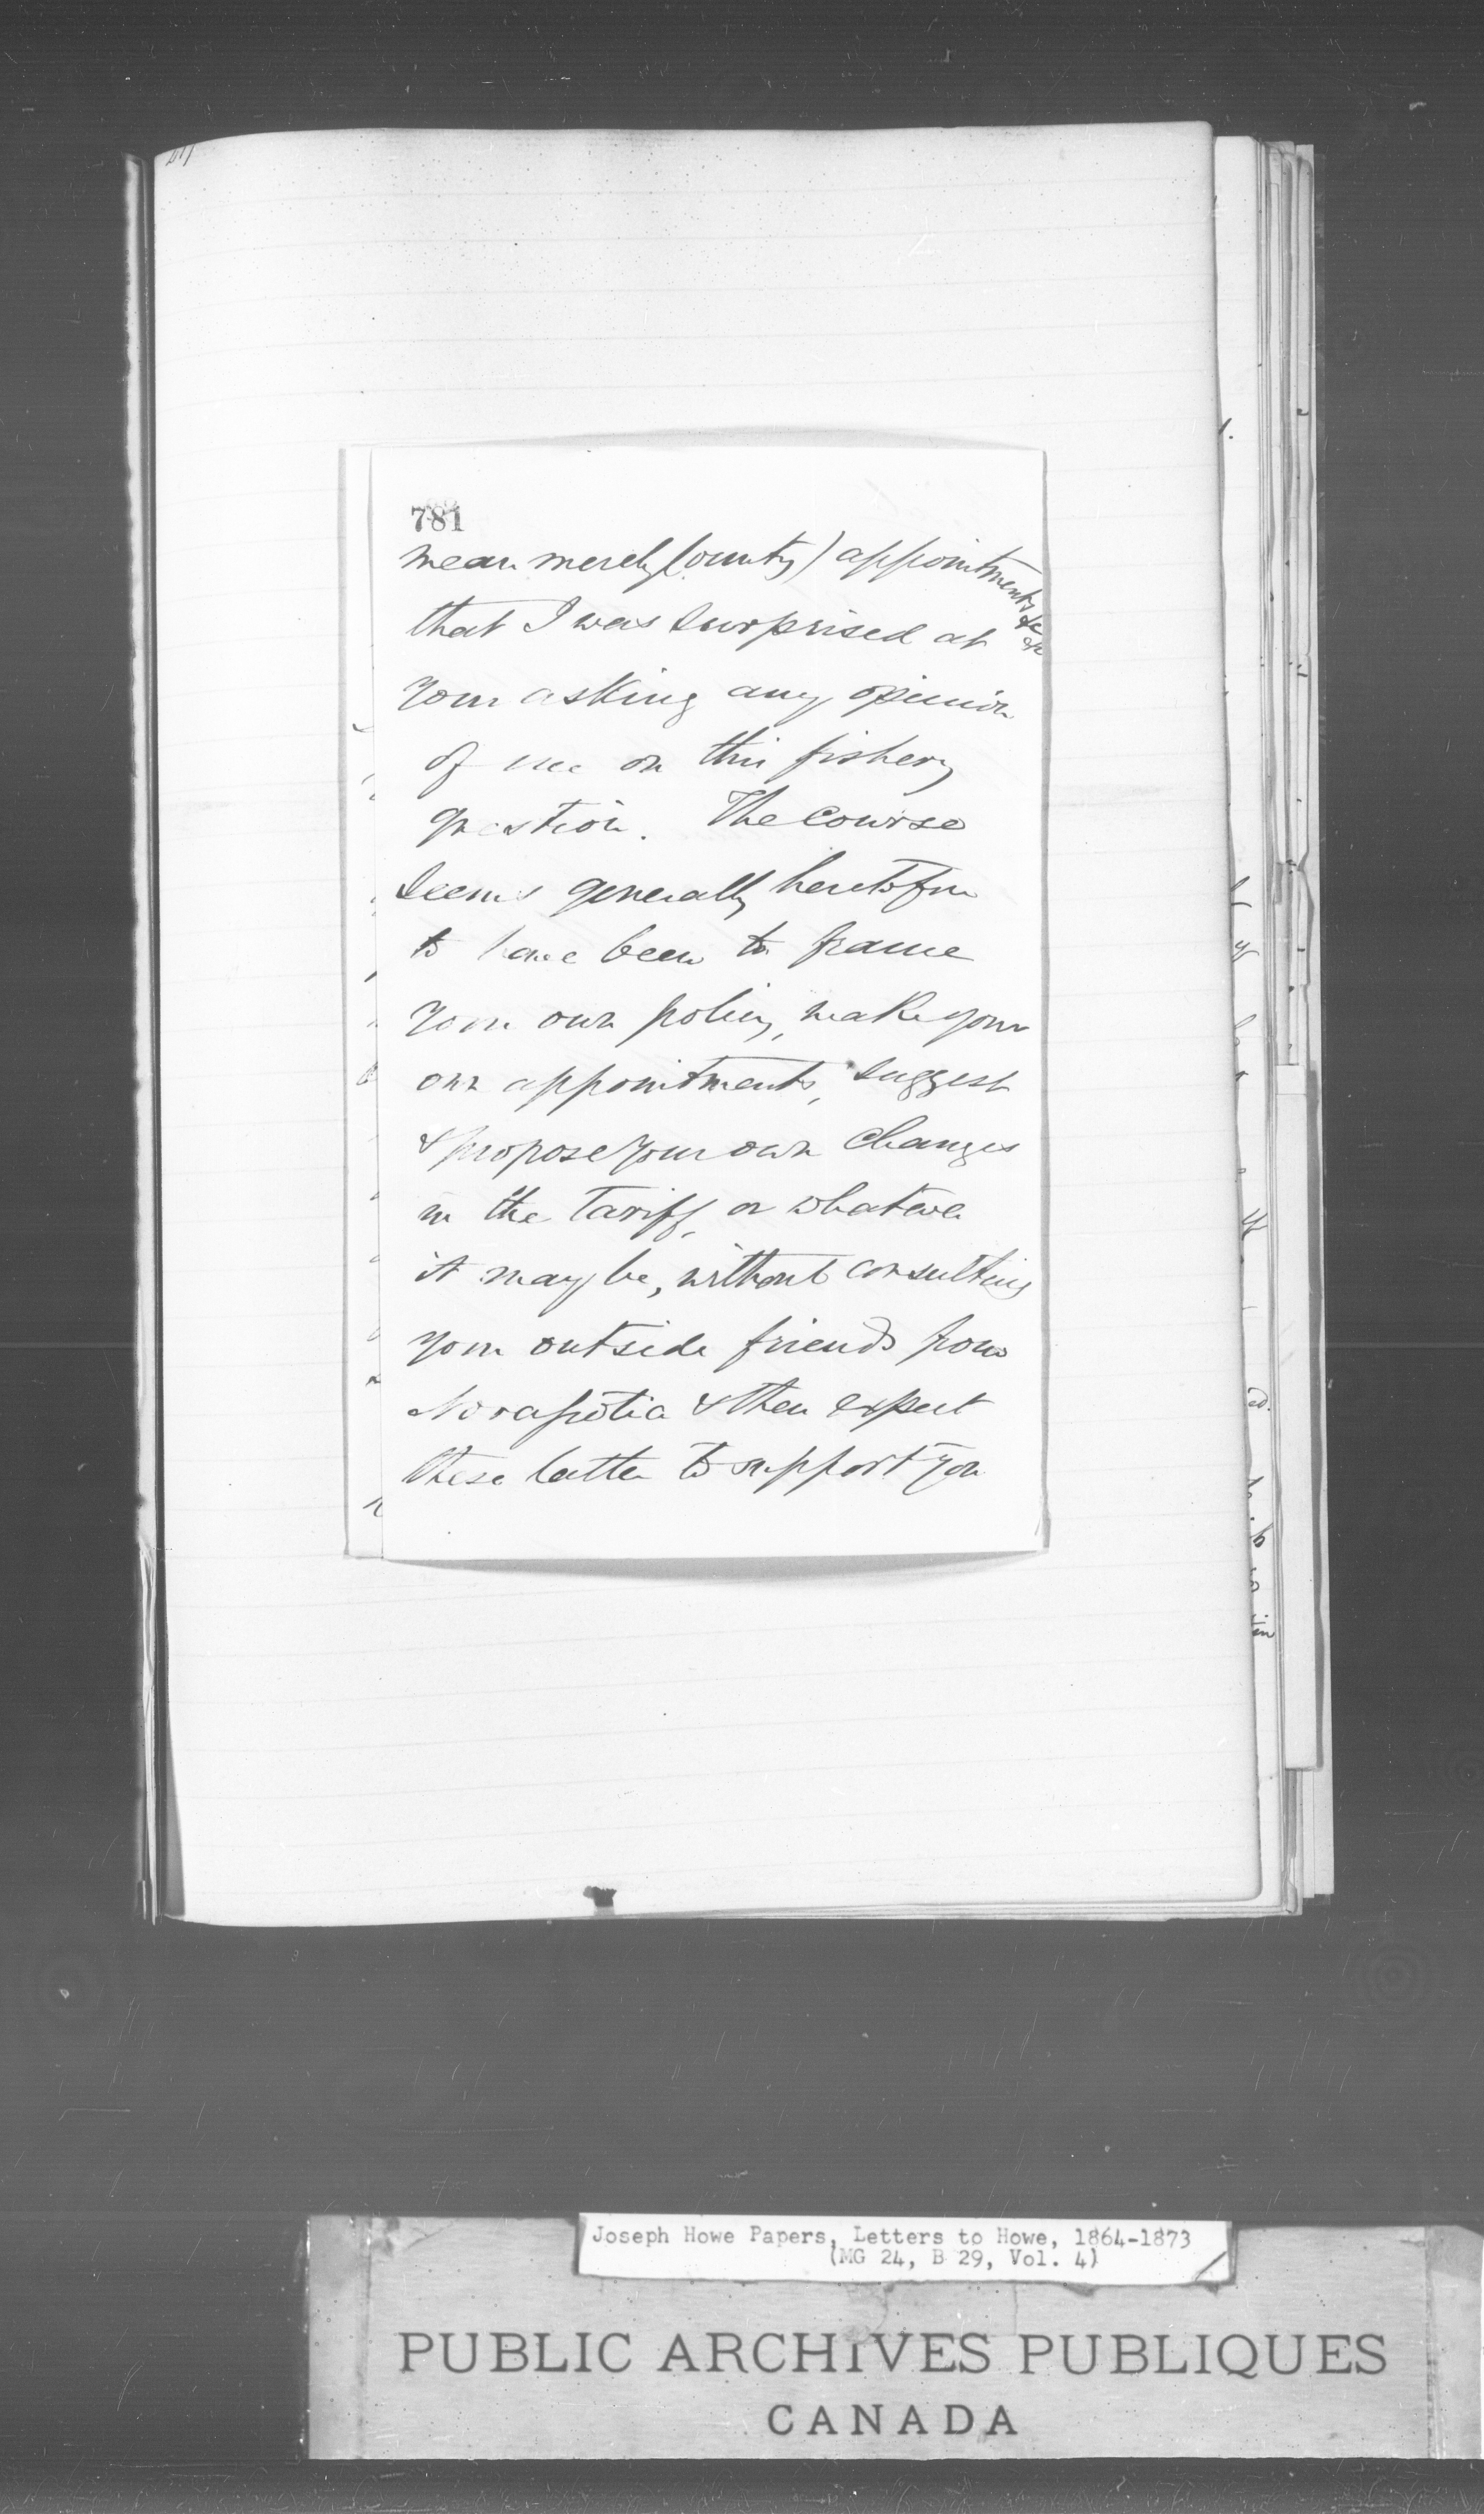 781
mean merely County) appointments &c &c
that I was surprised at
your asking any opinion
of me on this fishery
question. The course
seems generally heretofore
to have been to frame
your own policy, make your
own appointments, suggest
& propose your own changes
in the Tariff, or whatever
it may be, without consulting
your outside friends from
Nova Scotia & then expect
these latter to support you
Joseph Howe Papers, Letters to Howe, 1864-1873
(MG 24, B 29, Vol. 4)
PUBLIC ARCHIVES PUBLIQUES
CANADA